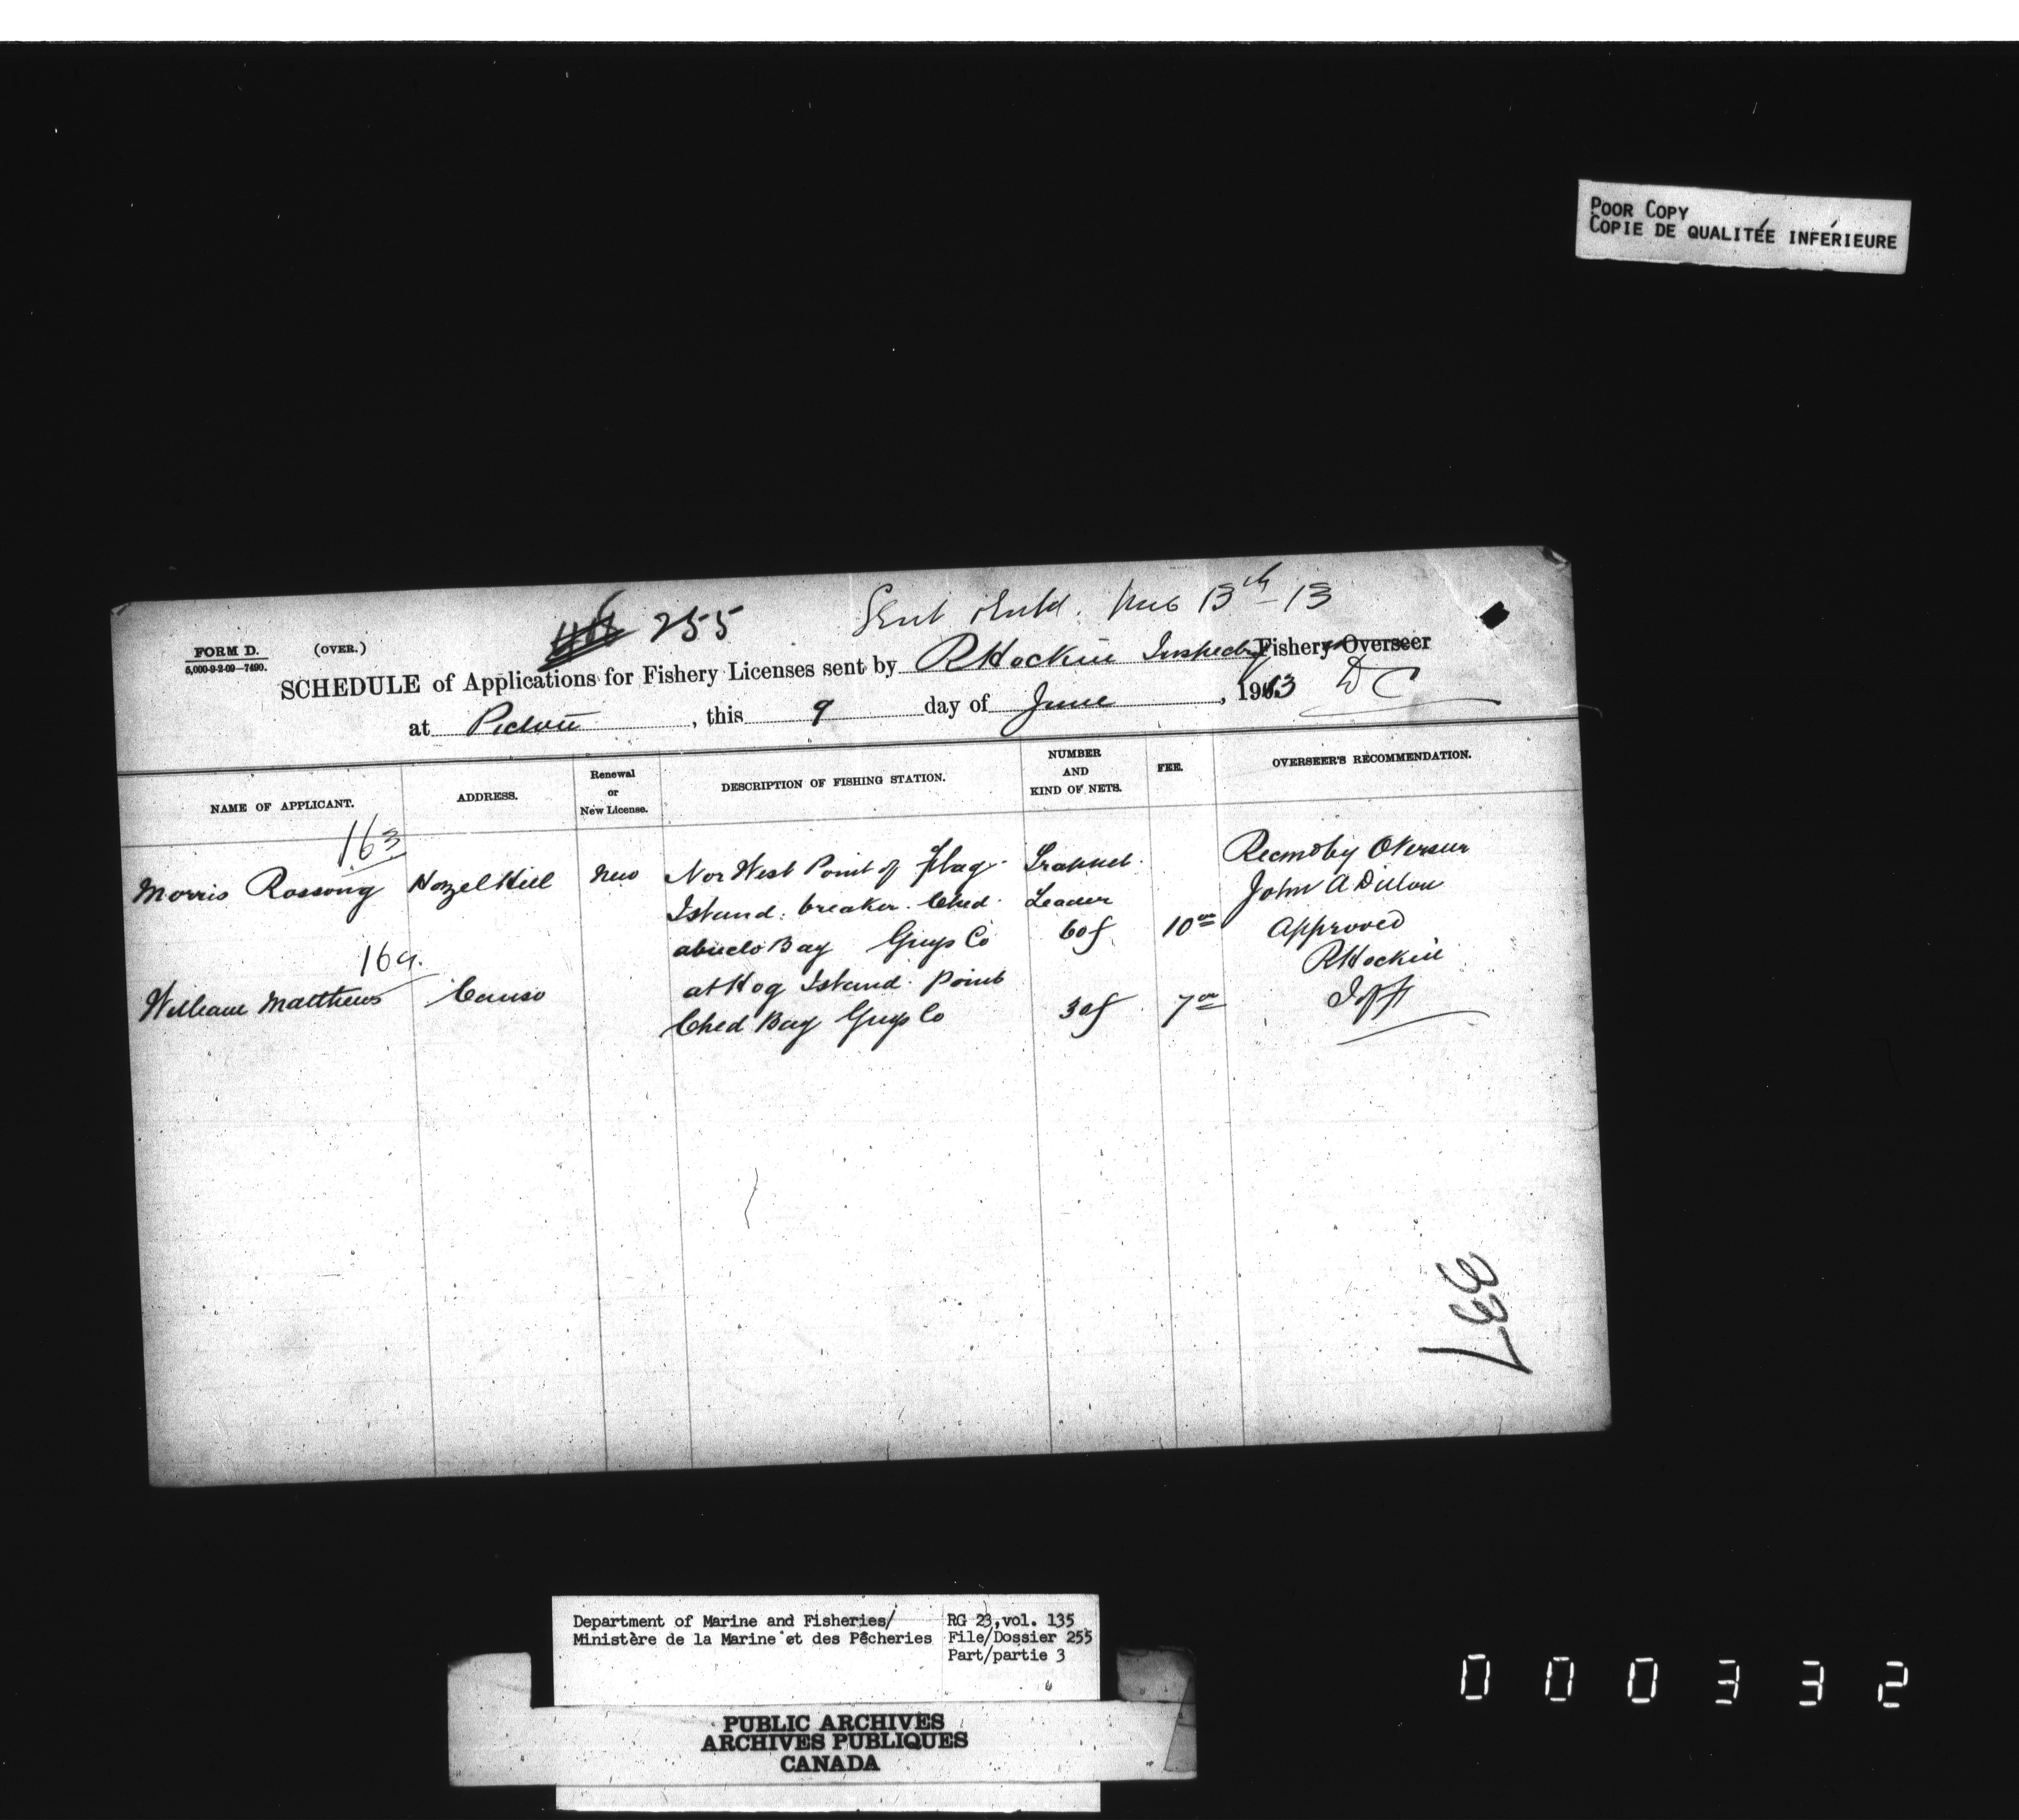 POOR COPY
COPIE DE QUALITÉE INFÉRIEURE
255 Sent 13th-13
FORM D. (OVER.)
5,000-9-2-09—7490.
SCHEDULE of Applications for Fishery Licenses sent by R Hockin Inspector Fishery Overseer
at Pictou, this 9 day of June, 1913 D C
NAME OF APPLICANT. ADDRESS. Renewal or New License. DESCRIPTION OF FISHING STATION. NUMBER AND KIND OF NETS. FEE. OVERSEER'S RECOMMENDATION.
163
Morris Rossong Hazel Hill New Nor West Point of Flag Trapnet Recmd by Overseer
Island breaker Ched Leader John A Dillon
abucto Bay Guys Co 60f 10 00 Approved
164 R Hockin
William Matthews Canso at Hog Island Point
Ched Bay Guys Co 30f 7 00
337
Department of Marine and Fisheries/
Ministère de la Marine et des Pêcheries
RG 23, vol. 135
File/Dossier 255
Part/partie 3
PUBLIC ARCHIVES
ARCHIVES PUBLIQUES
CANADA
000332